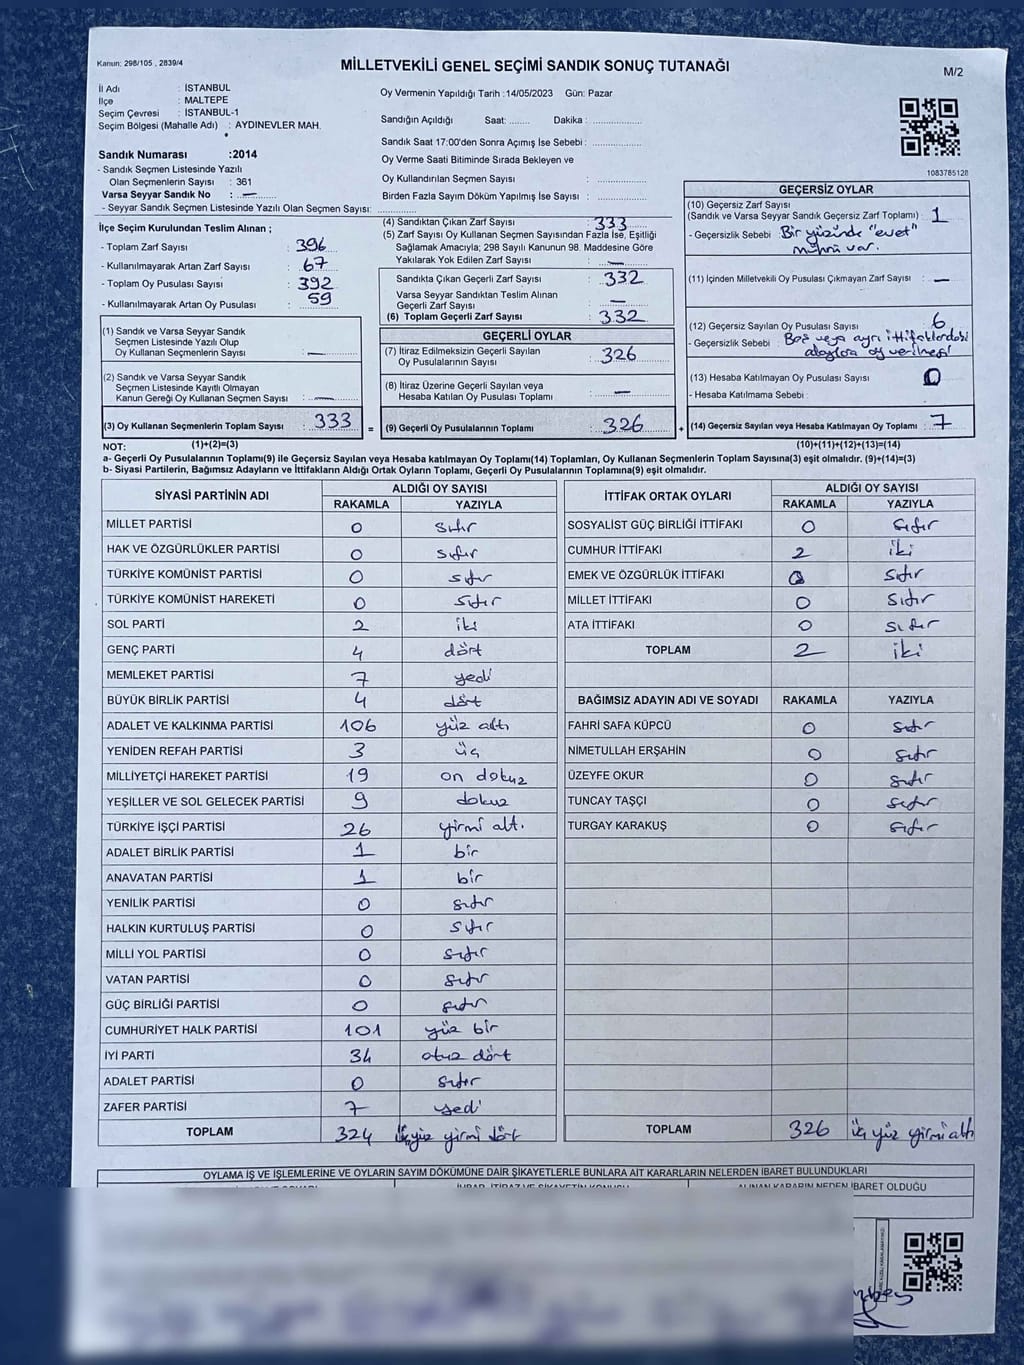 Kanun: 298/105 , 2839/4
MİLLETVEKİLİ GENEL SEÇİMİ SANDIK SONUÇ TUTANAĞI
M/2
İl Adı : İSTANBUL
İlçe : MALTEPE
Seçim Çevresi : İSTANBUL-1
Seçim Bölgesi (Mahalle Adı) : AYDINEVLER MAH.
Sandık Numarası :2014
- Sandık Seçmen Listesinde Yazılı
Olan Seçmenlerin Sayısı : 361
Varsa Seyyar Sandık No : —
- Seyyar Sandık Seçmen Listesinde Yazılı Olan Seçmen Sayısı: ..............
Oy Vermenin Yapıldığı Tarih :14/05/2023 Gün: Pazar
Sandığın Açıldığı Saat: ....... Dakika : ................
Sandık Saat 17:00'den Sonra Açımış İse Sebebi : ................
Oy Verme Saati Bitiminde Sırada Bekleyen ve
Oy Kullandırılan Seçmen Sayısı : ................
Birden Fazla Sayım Döküm Yapılmış İse Sayısı : ................
1083785128
İlçe Seçim Kurulundan Teslim Alınan ;
- Toplam Zarf Sayısı : 396
- Kullanılmayarak Artan Zarf Sayısı : 67
- Toplam Oy Pusulası Sayısı : 392
- Kullanılmayarak Artan Oy Pusulası : 59
(1) Sandık ve Varsa Seyyar Sandık
Seçmen Listesinde Yazılı Olup
Oy Kullanan Seçmenlerin Sayısı : —
(2) Sandık ve Varsa Seyyar Sandık
Seçmen Listesinde Kayıtlı Olmayan
Kanun Gereği Oy Kullanan Seçmen Sayısı : —
(3) Oy Kullanan Seçmenlerin Toplam Sayısı : 333 =
(4) Sandıktan Çıkan Zarf Sayısı : 333
(5) Zarf Sayısı Oy Kullanan Seçmen Sayısından Fazla İse, Eşitliği
Sağlamak Amacıyla; 298 Sayılı Kanunun 98. Maddesine Göre
Yakılarak Yok Edilen Zarf Sayısı : —
Sandıkta Çıkan Geçerli Zarf Sayısı : 332
Varsa Seyyar Sandıktan Teslim Alınan
Geçerli Zarf Sayısı : —
(6) Toplam Geçerli Zarf Sayısı : 332
GEÇERLİ OYLAR
(7) İtiraz Edilmeksizin Geçerli Sayılan
Oy Pusulalarının Sayısı : 326
(8) İtiraz Üzerine Geçerli Sayılan veya
Hesaba Katılan Oy Pusulası Toplamı : —
(9) Geçerli Oy Pusulalarının Toplamı : 326 +
GEÇERSİZ OYLAR
(10) Geçersiz Zarf Sayısı
(Sandık ve Varsa Seyyar Sandık Geçersiz Zarf Toplamı) : 1
- Geçersizlik Sebebi : Bir yüzünde "evet"
mührü var.
(11) İçinden Milletvekili Oy Pusulası Çıkmayan Zarf Sayısı : —
(12) Geçersiz Sayılan Oy Pusulası Sayısı : 6
- Geçersizlik Sebebi : Boş veya ayrı ittifaklardaki
adaylara oy verilmesi
(13) Hesaba Katılmayan Oy Pusulası Sayısı : 0
- Hesaba Katılmama Sebebi :
(14) Geçersiz Sayılan veya Hesaba Katılmayan Oy Toplamı : 7
NOT: (1)+(2)=(3) (10)+(11)+(12)+(13)=(14)
a- Geçerli Oy Pusulalarının Toplamı(9) ile Geçersiz Sayılan veya Hesaba katılmayan Oy Toplamı(14) Toplamları, Oy Kullanan Seçmenlerin Toplam Sayısına(3) eşit olmalıdır. (9)+(14)=(3)
b- Siyasi Partilerin, Bağımsız Adayların ve İttifakların Aldığı Ortak Oyların Toplamı, Geçerli Oy Pusulalarının Toplamına(9) eşit olmalıdır.
SİYASİ PARTİNİN ADI ALDIĞI OY SAYISI
RAKAMLA YAZIYLA
MİLLET PARTİSİ 0 sıfır
HAK VE ÖZGÜRLÜKLER PARTİSİ 0 sıfır
TÜRKİYE KOMÜNİST PARTİSİ 0 sıfır
TÜRKİYE KOMÜNİST HAREKETİ 0 sıfır
SOL PARTİ 2 iki
GENÇ PARTİ 4 dört
MEMLEKET PARTİSİ 7 yedi
BÜYÜK BİRLİK PARTİSİ 4 dört
ADALET VE KALKINMA PARTİSİ 106 yüz altı
YENİDEN REFAH PARTİSİ 3 üç
MİLLİYETÇİ HAREKET PARTİSİ 19 on dokuz
YEŞİLLER VE SOL GELECEK PARTİSİ 9 dokuz
TÜRKİYE İŞÇİ PARTİSİ 26 yirmi altı
ADALET BİRLİK PARTİSİ 1 bir
ANAVATAN PARTİSİ 1 bir
YENİLİK PARTİSİ 0 sıfır
HALKIN KURTULUŞ PARTİSİ 0 sıfır
MİLLİ YOL PARTİSİ 0 sıfır
VATAN PARTİSİ 0 sıfır
GÜÇ BİRLİĞİ PARTİSİ 0 sıfır
CUMHURİYET HALK PARTİSİ 101 yüz bir
İYİ PARTİ 34 otuz dört
ADALET PARTİSİ 0 sıfır
ZAFER PARTİSİ 7 yedi
TOPLAM 324 üçyüz yirmi dört
İTTİFAK ORTAK OYLARI ALDIĞI OY SAYISI
RAKAMLA YAZIYLA
SOSYALİST GÜÇ BİRLİĞİ İTTİFAKI 0 sıfır
CUMHUR İTTİFAKI 2 iki
EMEK VE ÖZGÜRLÜK İTTİFAKI 0 sıfır
MİLLET İTTİFAKI 0 sıfır
ATA İTTİFAKI 0 sıfır
TOPLAM 2 iki
BAĞIMSIZ ADAYIN ADI VE SOYADI RAKAMLA YAZIYLA
FAHRİ SAFA KÜPCÜ 0 sıfır
NİMETULLAH ERŞAHİN 0 sıfır
ÜZEYFE OKUR 0 sıfır
TUNCAY TAŞÇI 0 sıfır
TURGAY KARAKUŞ 0 sıfır
TOPLAM 326 üç yüz yirmi altı
OYLAMA İŞ VE İŞLEMLERİNE VE OYLARIN SAYIM DÖKÜMÜNE DAİR ŞİKAYETLERLE BUNLARA AİT KARARLARIN NELERDEN İBARET BULUNDUKLARI
İHBAR, İTİRAZ VE ŞİKAYETİN KONUSU ALINAN KARARIN NEDEN İBARET OLDUĞU